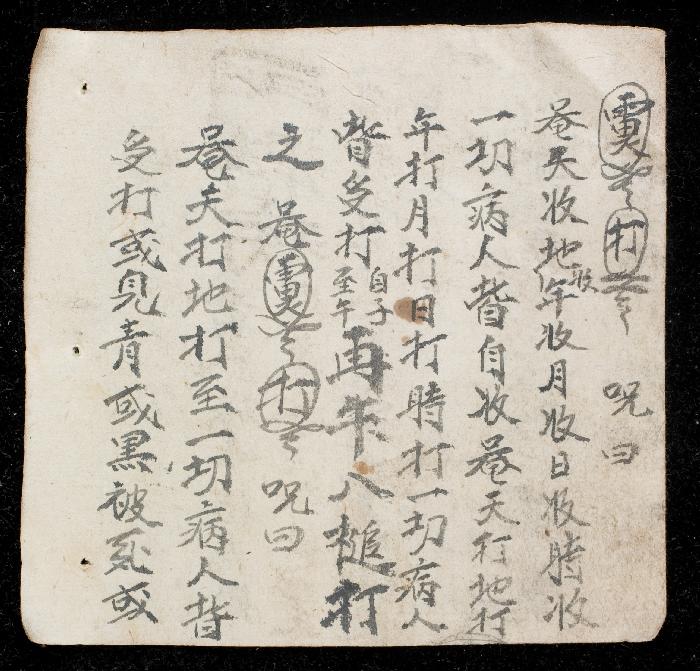 咒曰
唵天收地收年收月收日收時收
一切病人皆自收唵天打地打
年打月打日打時打一切病人
皆受打自子至午再年八搥打
之 唵 打 咒曰
唵天打地打至一切病人皆
受打或見青或黑被死或